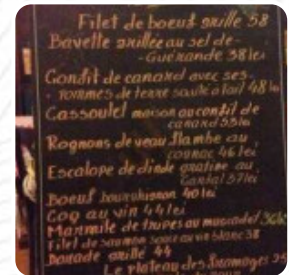 Filet de boeuf grillé 58
Bavette grillée au sel de-
-Guérande 38 lei
Confit de canard avec ses-
pommes de terre sauté a l'ail 48 lei
Cassoulet maison au confit de
canard 55 lei
Rognons de veau flambe au
cognac 46 lei
Escalope de dinde gratiné au
Cantal 37 lei
Boeuf bourguignon 40 lei
Coq au vin 44 lei
Marmite de moules au muscadet 36 lei
Filet de saumon sauce au vin blanc 38
Dorade grillé 44
Le plateau des fromages